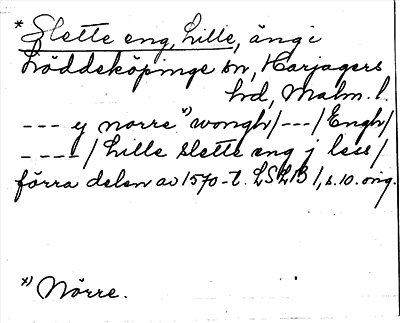 * Slette eng, Lille, äng i
Löddeköpinge sn, Harjagers
hd, Malm. l.
--- y norre *) wongh/---/Engh/
----/ Lille slette eng j less/
förra delen av 1570-t. LSLB 1, s. 10. orig.
*) Nörre.